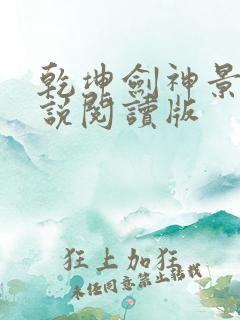 乾坤劍神景
說閱讀版
狂上加狂
未经同意禁止转载